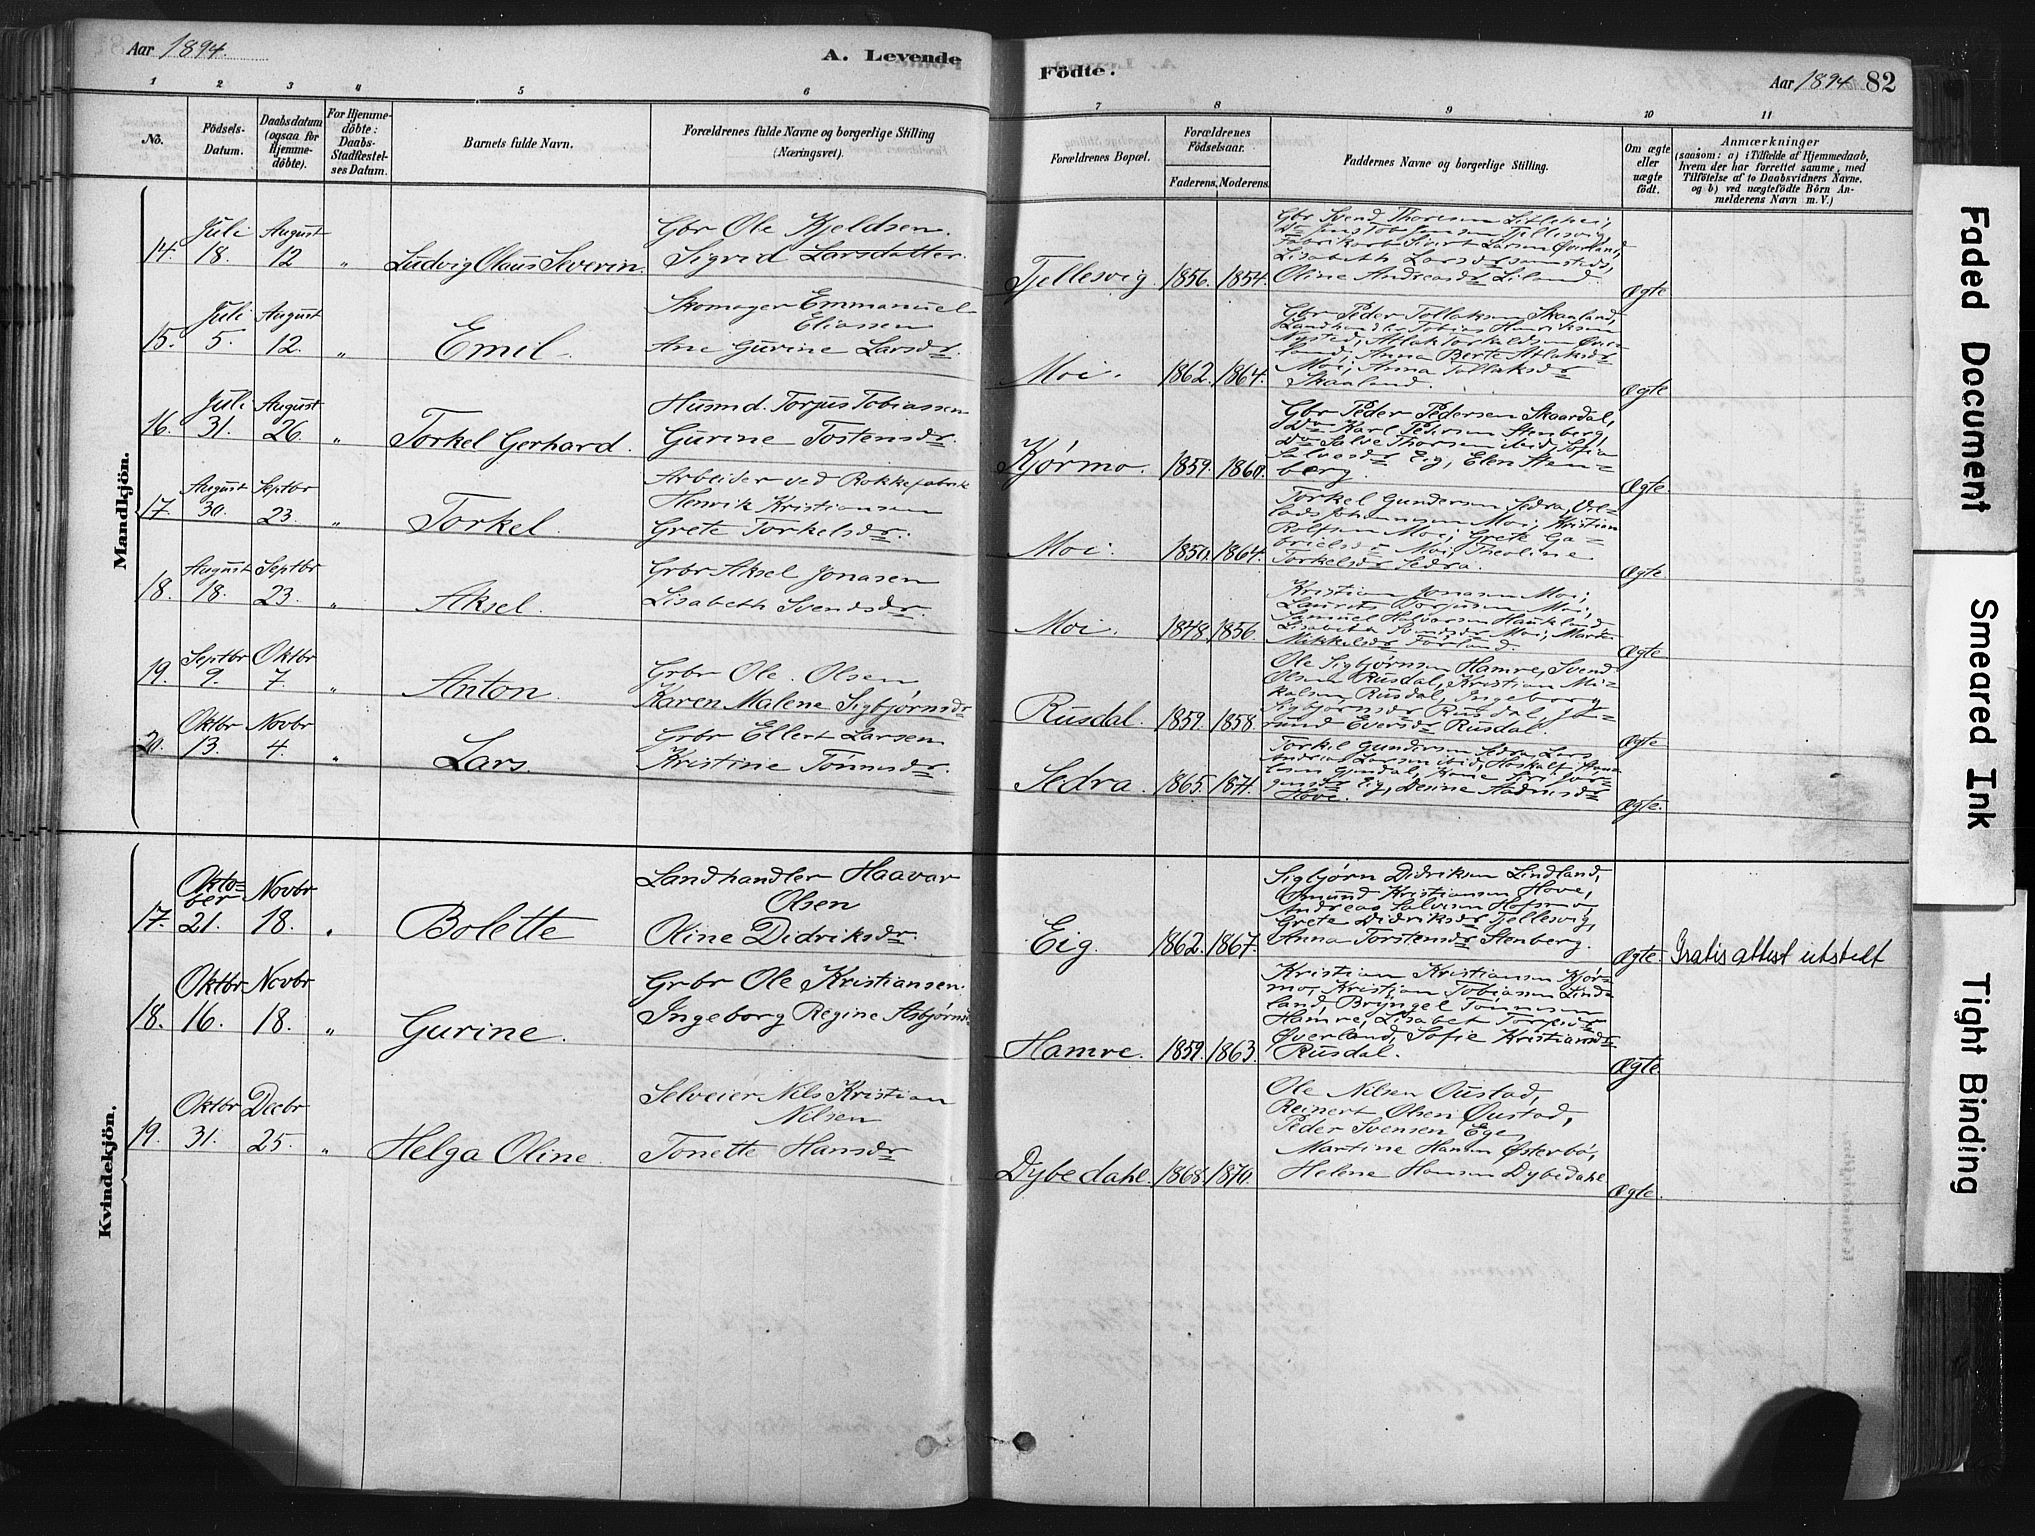 Aar 1894.
A. Levende
Födte.
Aar 1894
82
1
2
3
4
5
6
7
8
9
10
11
No.
Födsels-
Datum.
Daabsdatum
(ogsaa for
Hjemme-
döbte).
For Hjemme-
döbte:
Daabs-
Stadfæstel-
ses Datum.
Barnets fulde Navn.
Forældrenes fulde Navne og borgerlige Stilling
(Næringsvei).
Forældrenes Bopæl.
Forældrenes
Födselsaar.
Faderens.
Moderens.
Faddernes Navne og borgerlige Stilling.
Om ægte
eller
uægte
födt.
Anmærkninger
(saasom: a) i Tilfælde af Hjemmedaab,
hvem der har forrettet samme, med
Tilföielse af to Daabsvidners Navne.
og b) ved uægtefödte Börn An-
melderens Navn m. V.)
Mandkjön.
14. Juli 18. August 12 " Ludvig Olaus Severin.
Gbr Ole Kjeldsen.
Sigrid Larsdatter.
Tjellesvig 1856. 1854.
Gbr Svend Thoresen
Tjellesvig,
Sivert Larsen Øverland,
Lisabeth
Oline Andreasdr Liland.
Ægte
15. Juli 5. August 12. " Emil.
Skomager Emmanuel
Eliassen
Ane Gurine Larsdr.
Moi. 1862. 1864.
Gbr Peder Tollaksen Skaaland,
Landhandler Tobias Henriksen
Nysted, Atlak Torkeldsen Øver-
land, Anna Berte Atlaksdr
Moi, Anna Tollaksdr
Skaaland.
Ægte
16. Juli 31. August 26. " Torkel Gerhard.
Husmd. Torjus Tobiassen
Gurine Tostensdr.
Kjørmo. 1859. 1860.
Gbr Peder Pedersen Skaardal,
Do Karl Pedersen Stenberg,
Do Salve Thorsen ibid, Sofie
Salvesdr Eig, Elen Sten-
berg.
Ægte.
17. August 30. Septbr 23. " Torkel.
Arbeider ved Rokkefabrik
Henrik Kristiansen
Grete Torkelsdr.
Moi. 1850. 1864.
Torkel Gundersen Sedra,
Johannesen Moi, Kristian
Rolfsen Moi, Grete Ga-
brielsdr Moi, Theoline
Torkelsdr Sedra.
Ægte
18. August 18. Septbr 23. " Aksel.
Grbr Aksel Jonasen
Lisabeth Svendsdr.
Moi. 1848. 1856.
Kristian Jonasen Moi,
Laurits Torjusen Moi,
Samuel Halvorsen Haukland
Lisabeth Moi,
Mikkelsdr Førland.
Ægte
19. Septbr 9. Oktbr 7. " Anton.
Grbr Ole Olsen
Karen Malene Sigbjørnsdr
Rusdal. 1859. 1858.
Ole Sigbjørnsen Hamre, Svend
Olsen Rusdal, Kristian Mi-
kalsen Rusdal, Ingeborg
Sigbjørnsdr Rusdal, Jo-
rund Eversdr Rusdal.
Ægte
20. Oktbr 13. Novbr 4. " Lars.
Grbr Ellert Larsen
Kristine Tønnesdr.
Sedra. 1865. 1871.
Torkel Gundersen Sedra, Lars
Andreas Larsen ibid,
Gyudal,
Eig, Desine Aadnesdr
Hove.
Ægte.
Kvindekjön.
17. Okto-
ber 21. Novbr 18. " Bolette
Landhandler Haavar
Olsen
Oline Didriksdr.
Eig. 1862. 1867.
Sigbjørn Didriksen Lindland,
Omund Kristiansen Hove,
Andreas Salvesen Hofsmo,
Grete Didriksdr Tjellesvig,
Anna Torstensdr Stenberg.
Ægte. Gratis attest utstelt
18. Oktbr 16. Novbr 18. " Gurine.
Grbr Ole Kristiansen.
Ingeborg Regine Asbjørnsdr
Hamre. 1859. 1863.
Kristian Kristiansen Kjør-
mo, Kristian Tobiasen Lind-
land, Bryngel Tønnesen
Hamre, Lisabet Torjesdr
Øverland, Sofie Kristiansdr
Rusdal.
Ægte.
19. Oktbr 31. Decbr 25. " Helga Oline.
Selveier Nils Kristian
Nilsen
Tonette Hansdr
Dybedahl. 1868. 1870.
Ole Nilsen Oustad,
Reinert Olsen Oustad,
Peder Svensen Ege,
Martine Hansen Østerbø,
Helene Hansen Dybedahl
Ægte.
Faded Document
Smeared Ink
Tight Binding